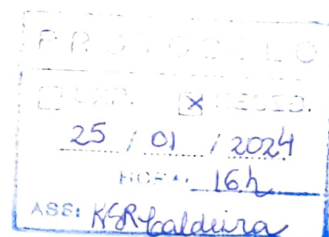 PROTOCOLO
RECEB.
25 / 01 / 2024
HORA: 16h
ASS: KSRCaldeira